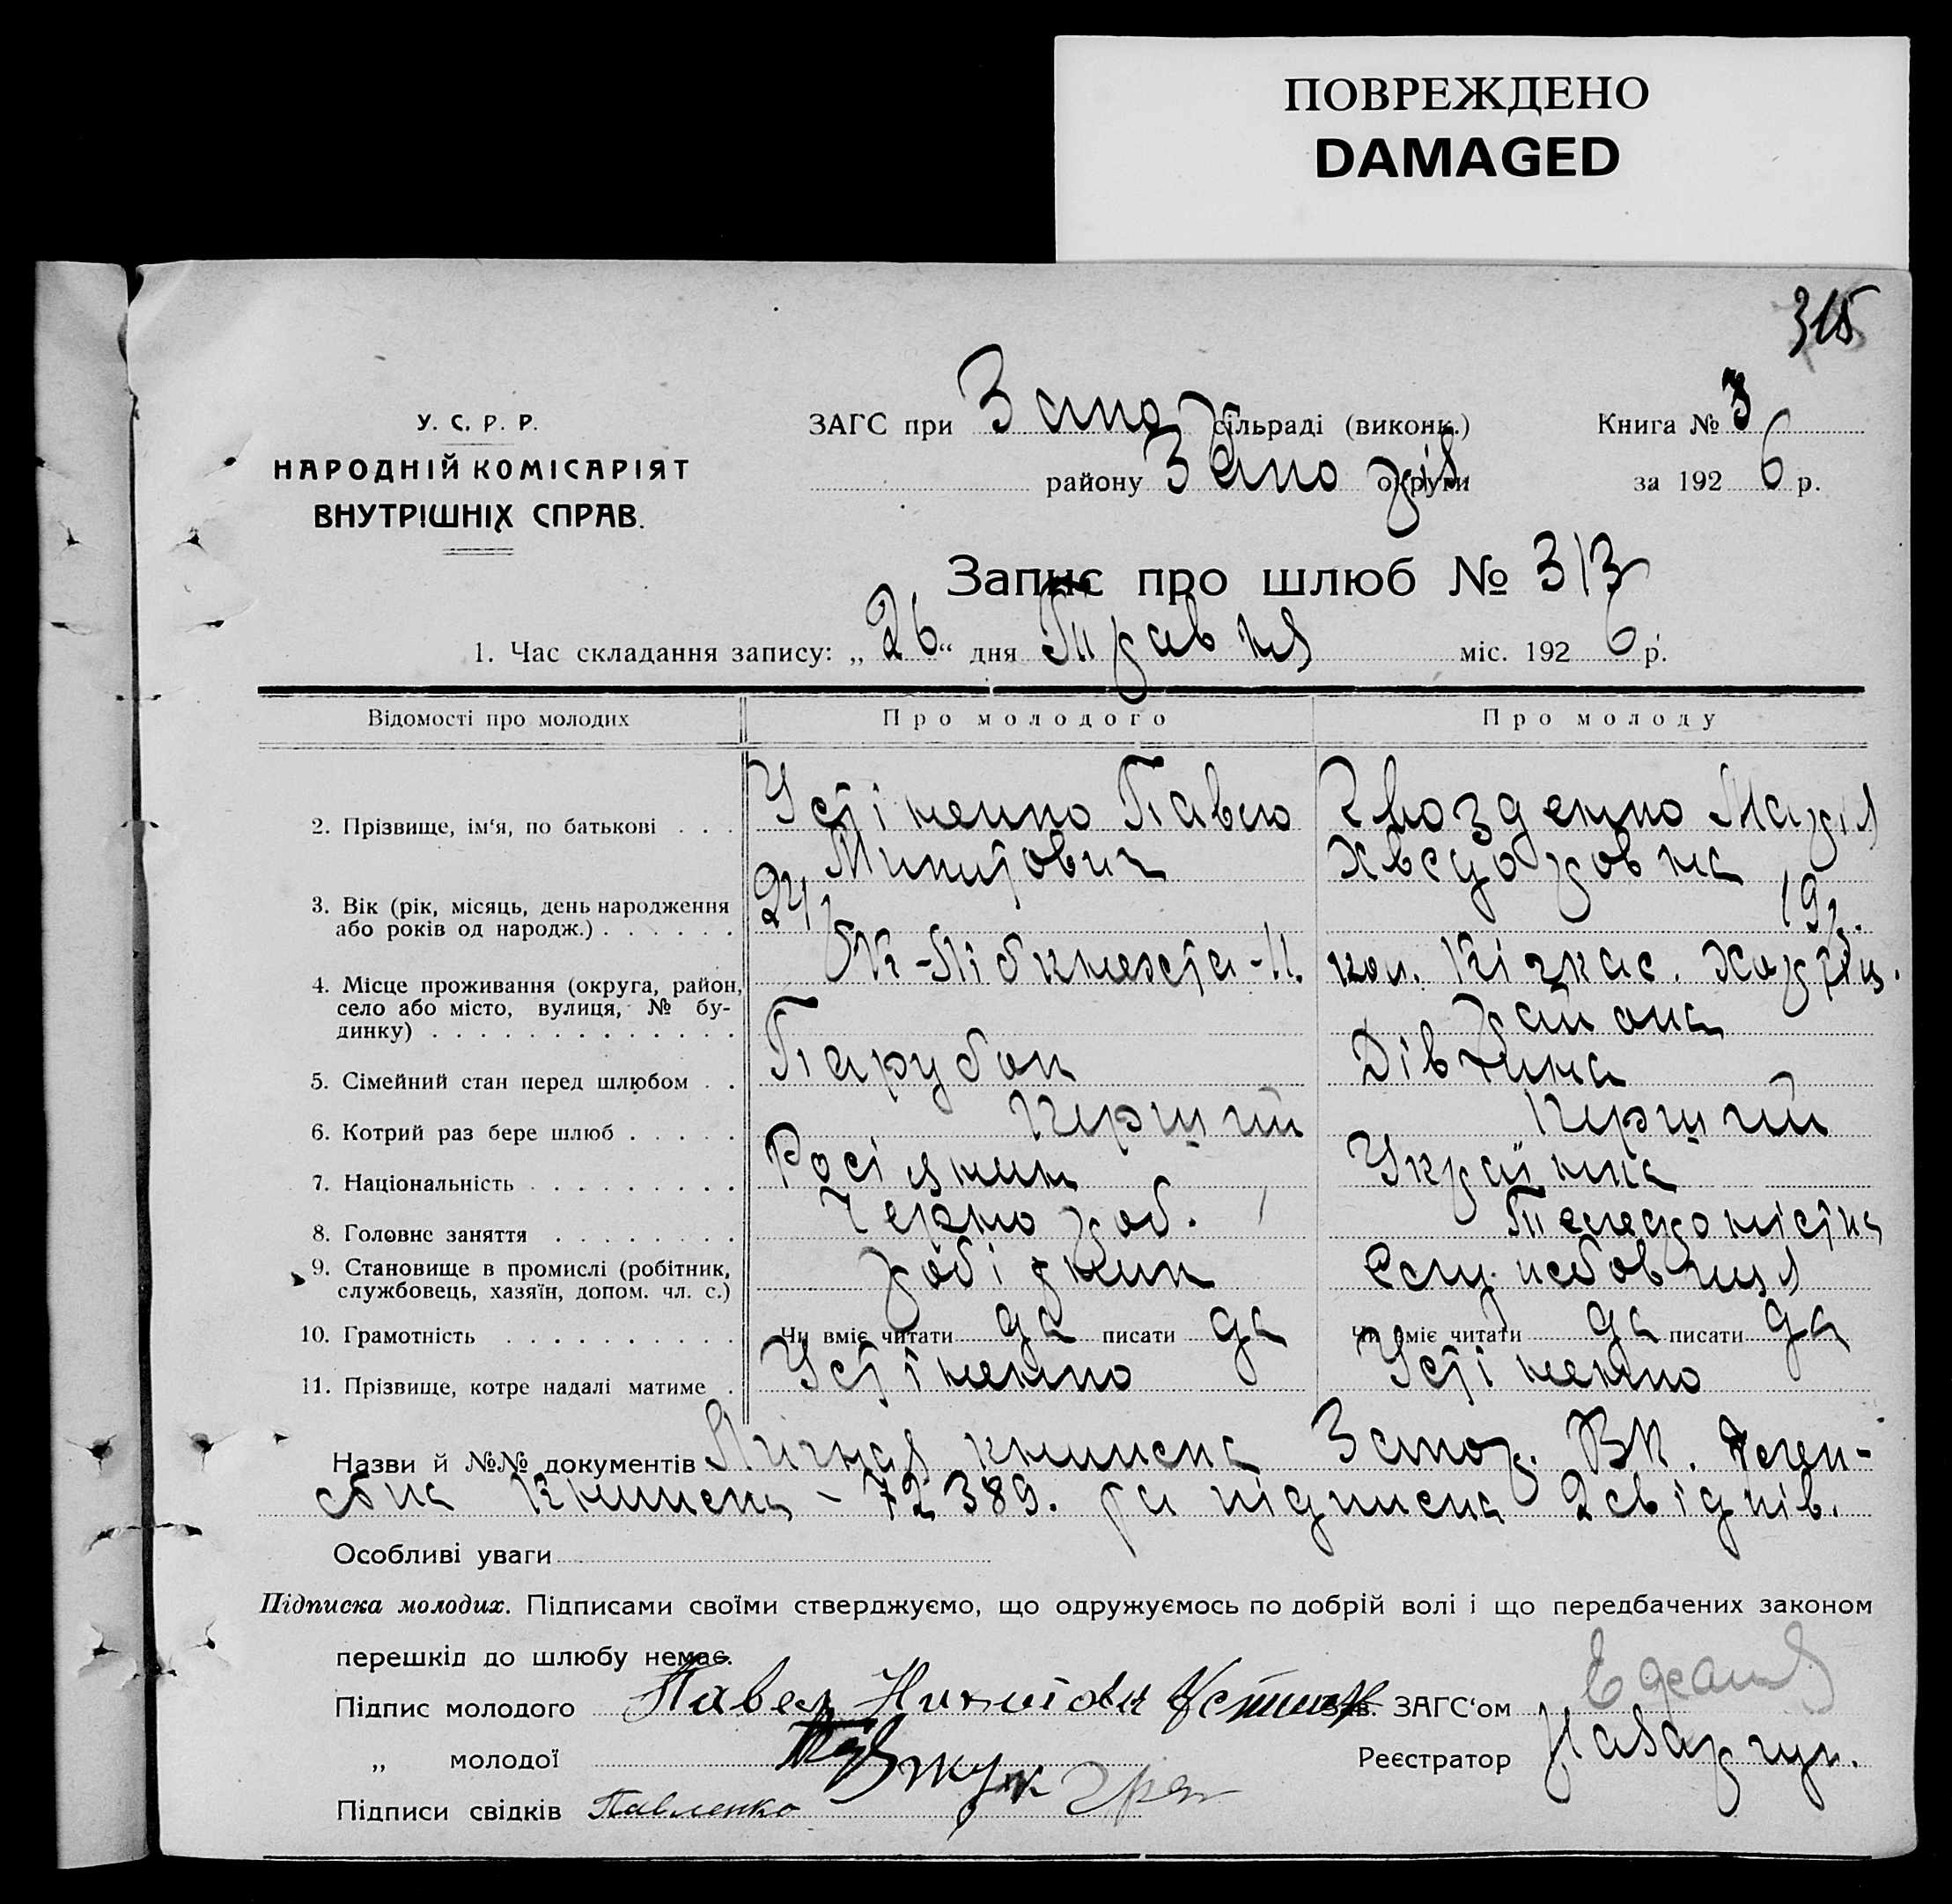 ПОВРЕЖДЕНО
DAMAGED
315
У. С. Р. Р.
НАРОДНІЙ КОМІСАРІЯТ
ВНУТРІШНІХ СПРАВ.
ЗАГС при Запо сільраді (виконк.)
району Запо округи
Книга № 3
за 1926 р.
Запис про шлюб № 313
1. Час складання запису: „26“ дня Травня міс. 1926 р.
Відомості про молодих Про молодого Про молоду
2. Прізвище, ім‘я, по батькові . . . Устіненко Павло Гвозденко Марія
Микитович Хведоровна
3. Вік (рік, місяць, день народження
або років од народж.) . . . . . . 24 19
4. Місце проживання (округа, район,
село або місто, вулиця, № бу-
динку) . . . . . . . . . . . . . кол. Кічкас.
района
5. Сімейний стан перед шлюбом . . Парубок Дівчина
6. Котрий раз бере шлюб . . . . . Перший Перший
7. Національність . . . . . . . . . Росіянин Українка
8. Головне заняття . . . . . . . . Чернороб. Телефоністка
9. Становище в промислі (робітник,
службовець, хазяїн, допом. чл. с.) робітник
10. Грамотність . . . . . . . . . . Чи вміє читати да писати да Чи вміє читати да писати да
11. Прізвище, котре надалі матиме . Устіненко Устіненко
Назви й №№ документів Личная книжка Запор. ВК.
книжка - 72389. підписка 2 свідків.
Особливі уваги
Підписка молодих. Підписами своїми стверджуємо, що одружуємось по добрій волі і що передбачених законом
перешкід до шлюбу немає.
Підпис молодого Павел Зав. ЗАГС‘ом
„ молодої Реєстратор
Підписи свідків Павленко